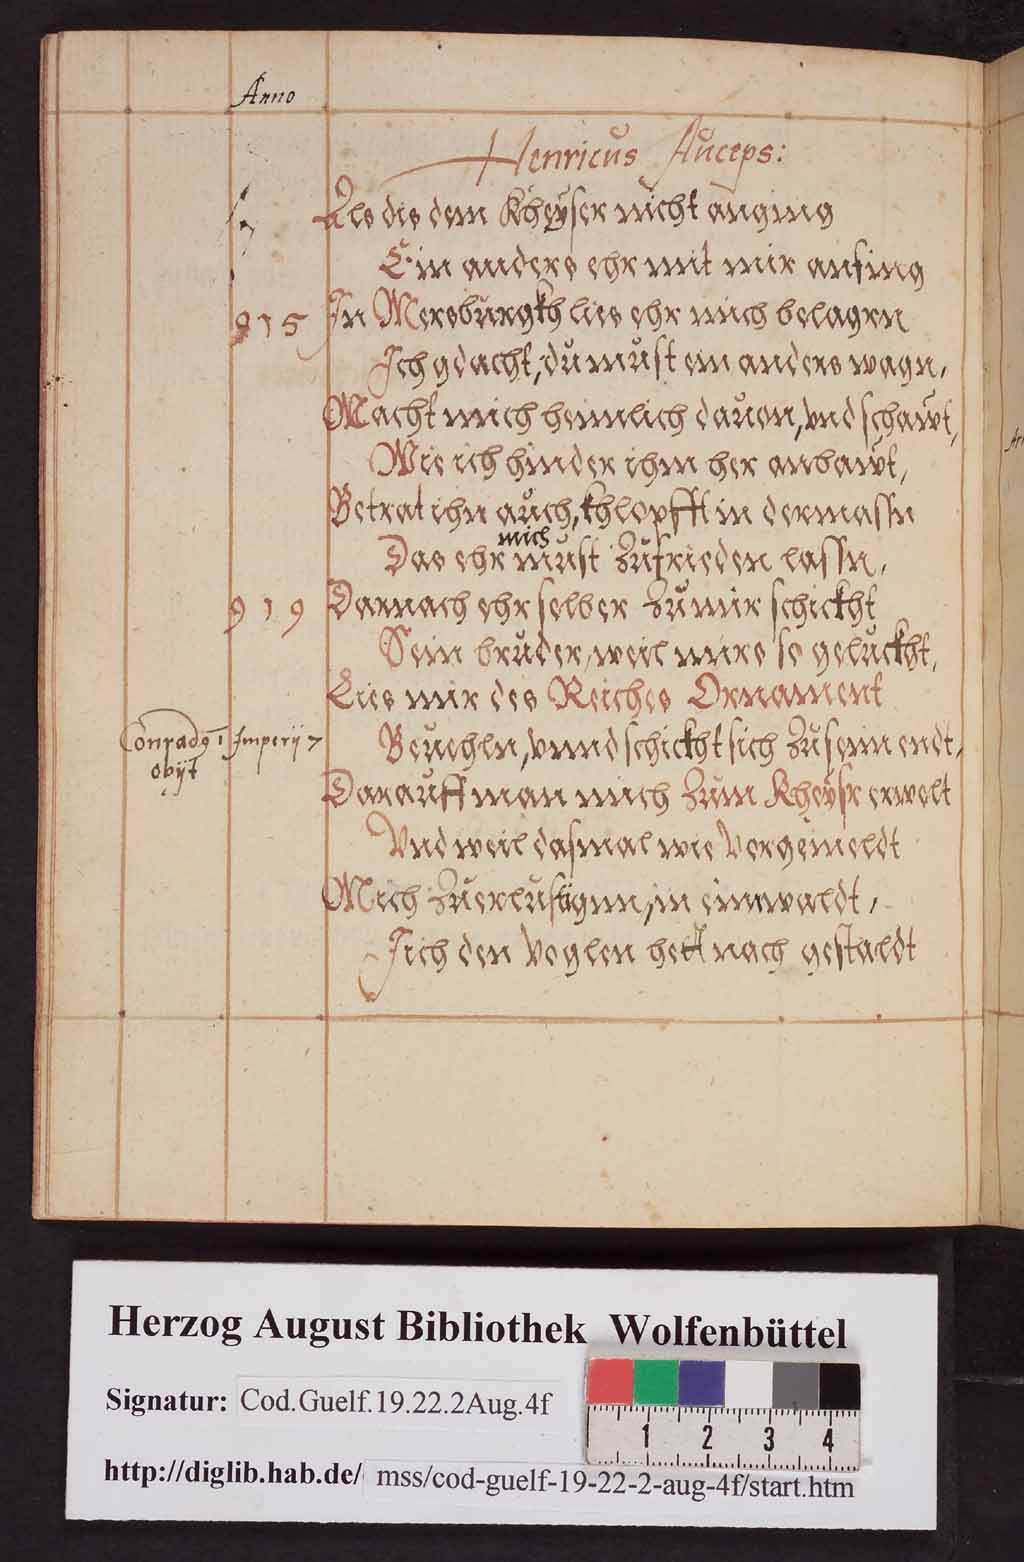 Anno
Henricus Auceps:
Als dis dem Kheÿser nicht anging
Ein anders ehr mit mir anfing
915 In Mersburgkh lies ehr mich belagrn
Ich gdacht, du must ein anders wagn,
Macht mich heimlich dauon, vnd schawt,
Wie ich hinder ihm her anbawt,
Betrat ihn auch, khlopfft in dermassn
mich
Das ehr must zufrieden lassn,
919 Darnach ehr selber zu mir schickht
Sein bruder, weil mirs so geluckht,
Lies mir des Reiches Ornament
Conrad9 i Imperij 7 Beuehln, vnnd schickht sich zu seim endt,
obijt
Darauff man mich zum Kheÿsr erwelt
Vnd weil dasmal wie vorgemeldt
Mich zuerlustignn, in eim waldt,
Ich den voglen hett nach gestaldt
Herzog August Bibliothek Wolfenbüttel
Signatur: Cod.Guelf.19.22.2Aug.4f
1 2 3 4
http://diglib.hab.de/ mss/cod-guelf-19-22-2-aug-4f/start.htm